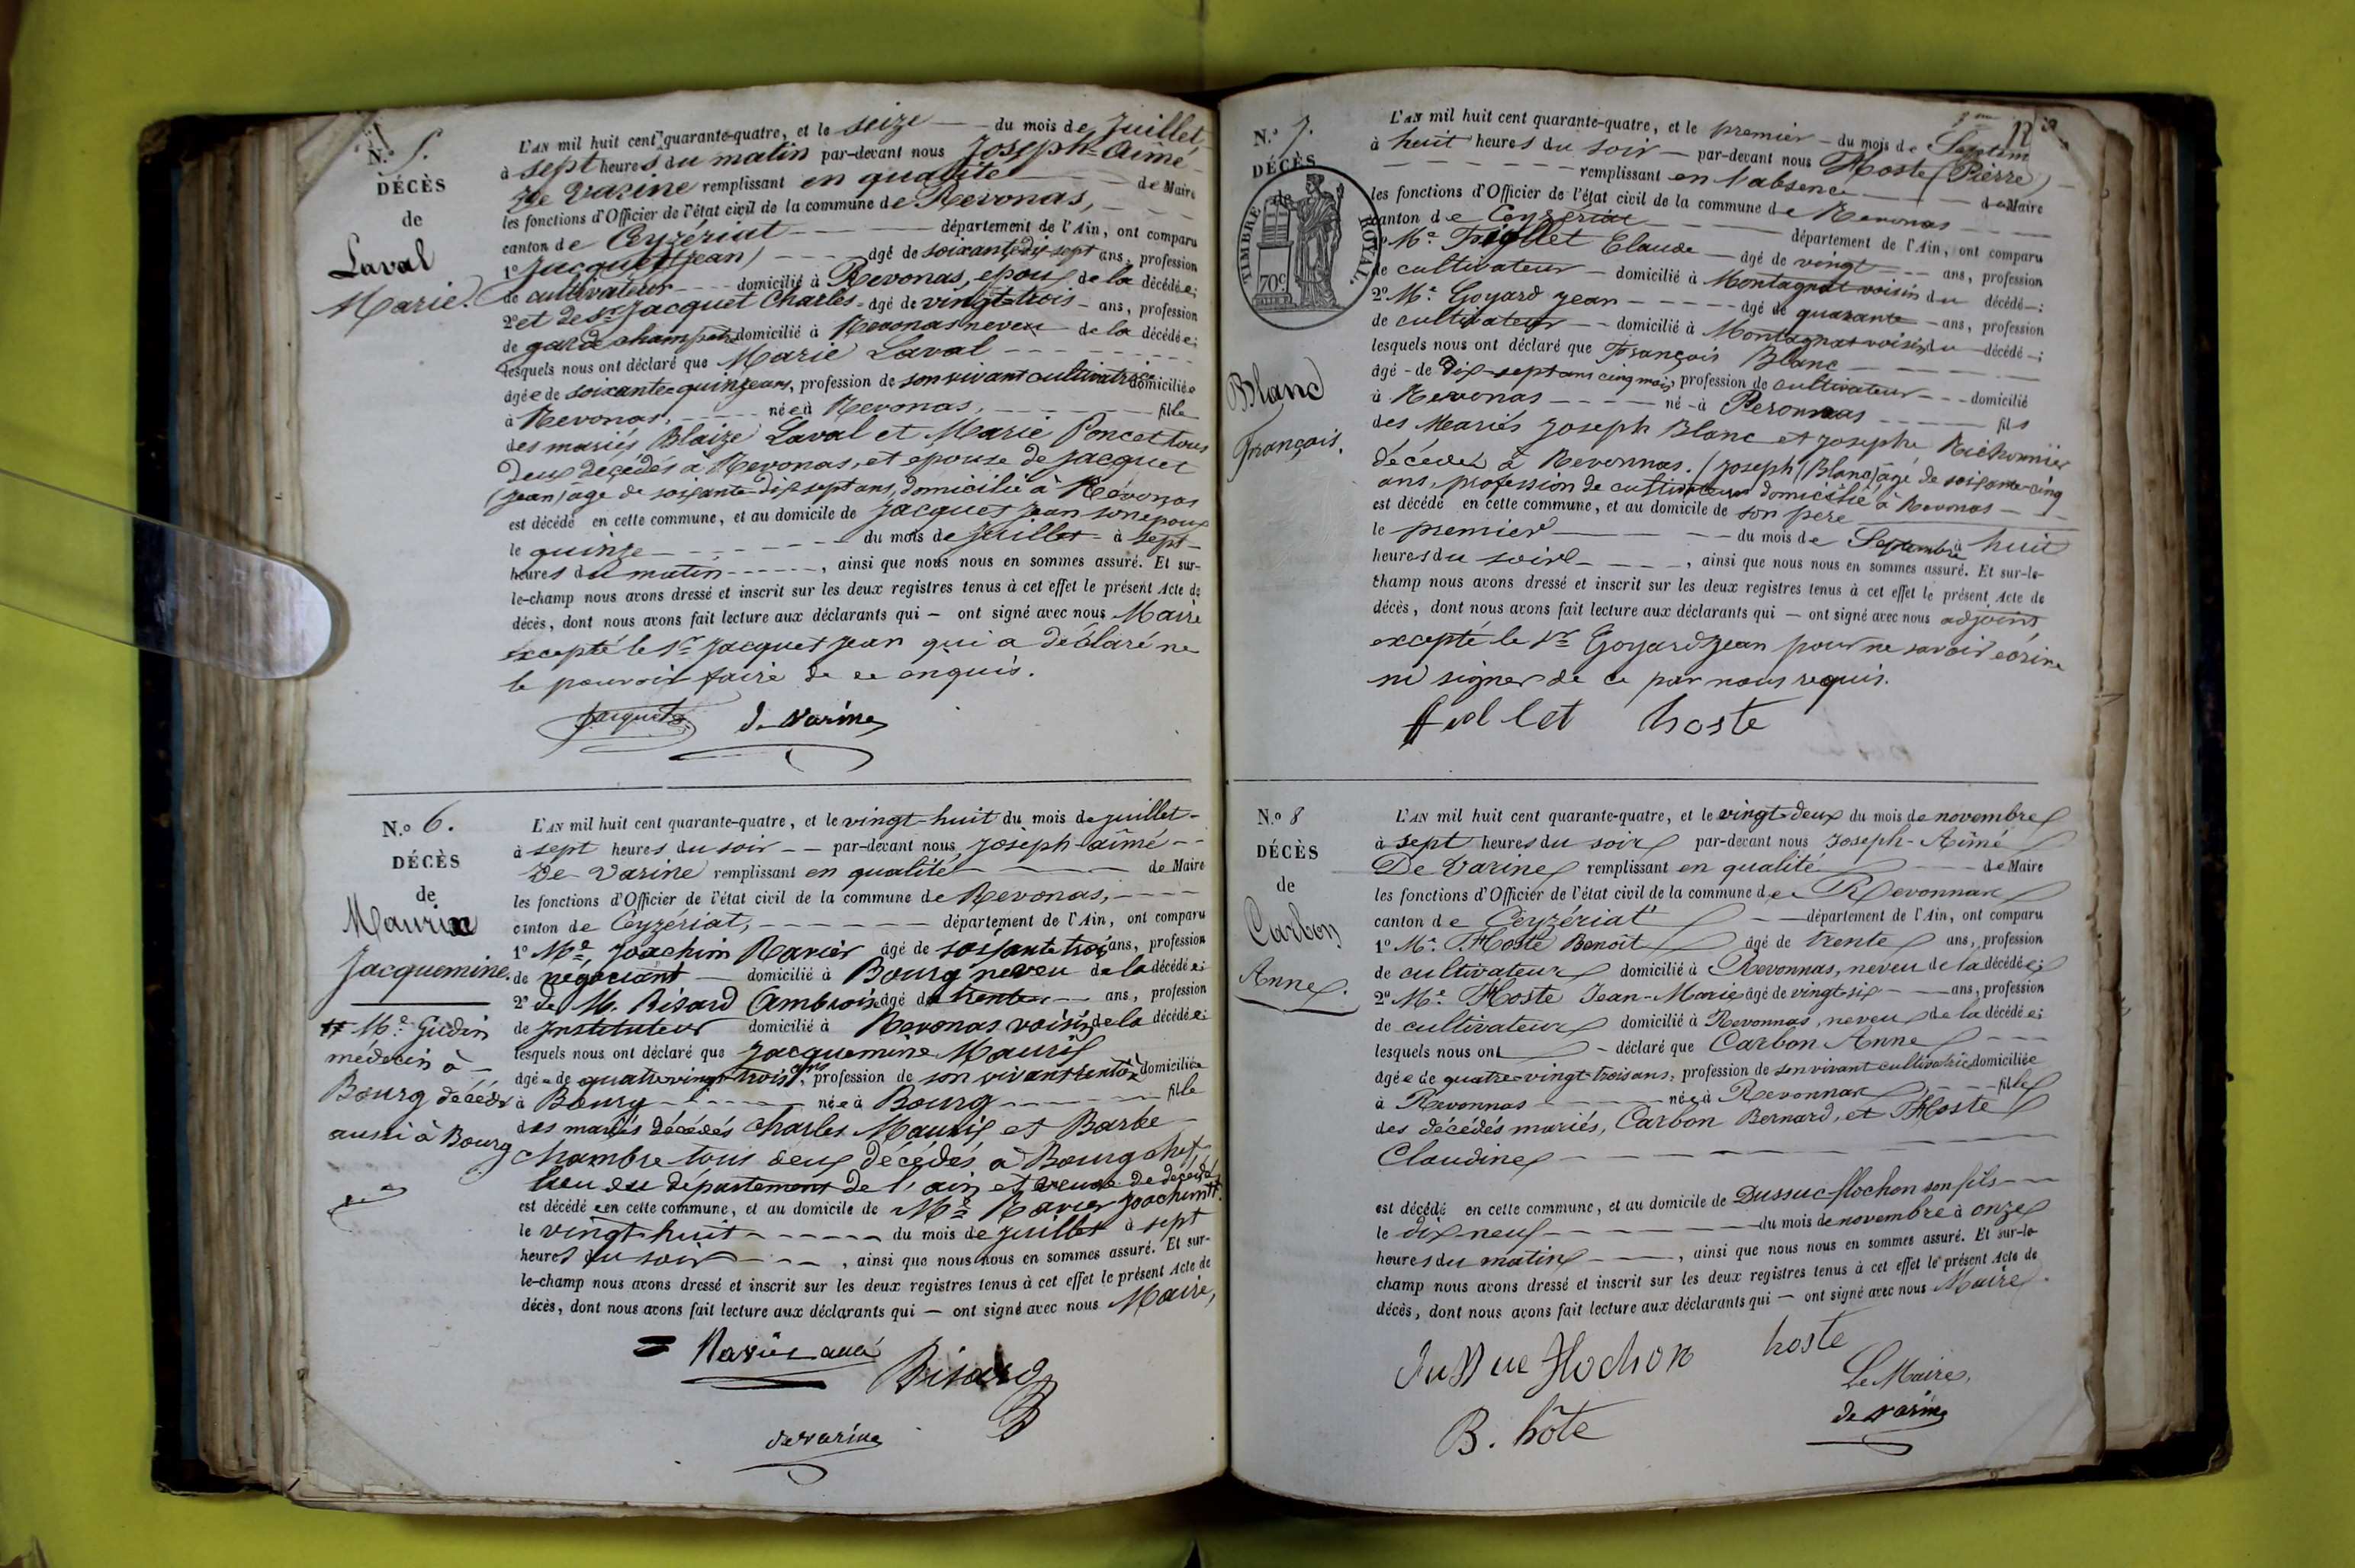 N.º 5.
DÉCÈS
de
Laval
Marie.
L'AN mil huit cent quarante-quatre, et le seize du mois de Juillet,
à sept heures du matin par-devant nous Joseph-Aimé
De Varine remplissant en qualité de Maire
les fonctions d'Officier de l'état civil de la commune de Revonas,
canton de Ceyzériat département de l'Ain, ont comparu
1º Jacquet (Jean) âgé de soixante dix-sept ans, profession
de cultivateur domicilié à Revonas, epoux de la décédée;
2º et de Sr Jacquet Charles âgé de vingt-trois ans, profession
de garde champetre domicilié à Revonas neveu de la décédée;
lesquels nous ont déclaré que Marie Laval
âgée de soixante-quinze ans, profession de son vivant cultivatrice domiciliée
à Revonas, née à Revonas, fille
des mariés Blaize Laval et Marie Poncet tous
deux décédés à Revonas, et epouse de Jacquet
(Jean) âgé de soixante-dix-sept ans, domicilié à Révonas
est décédé en cette commune, et au domicile de Jacquet Jean son epoux
le quinze du mois de Juillet à sept
heures du matin, ainsi que nous nous en sommes assuré. Et sur-
le-champ nous avons dressé et inscrit sur les deux registres tenus à cet effet le présent Acte de
décès, dont nous avons fait lecture aux déclarants qui — ont signé avec nous Maire
excepté le Sr Jacquet Jean qui a déclaré ne
le pouvoir faire de ce enquis.
Jacquet d. Varine
N.º 6.
DÉCÈS
de
Maurix
Jacquemine.
# Mr. Gudin
médecin à
Bourg décédé
aussi à Bourg
L'AN mil huit cent quarante-quatre, et le vingt-huit du mois de juillet
à sept heures du soir par-devant nous Joseph-aimé
De Varine remplissant en qualité de Maire
les fonctions d'Officier de l'état civil de la commune de Revonas,
canton de Ceyzériat, département de l'Ain, ont comparu
1º Mr. Joachim Ravier âgé de soixante trois ans, profession
de négociant domicilié à Bourg neveu de la décédée;
2º de M. Bisard Ambroise âgé de trente ans, profession
de Instituteur domicilié à Revonas voisin de la décédée;
lesquels nous ont déclaré que Jacquemine Maurix
âgée de quatre vingt-trois ans, profession de son vivant rentière domiciliée
à Bourg née à Bourg fille
des mariés décédés Charles Maurix et Barbe
Chambre tous deux décédés à Bourg chef
lieu du département de l'ain et veuve de décédé
est décédée en cette commune, et au domicile de Mr Ravier Joachim #.
le vingt-huit du mois de Juillet à sept
heures du soir, ainsi que nous nous en sommes assuré. Et sur-
le-champ nous avons dressé et inscrit sur les deux registres tenus à cet effet le présent Acte de
décès, dont nous avons fait lecture aux déclarants qui — ont signé avec nous Maire,
Ravier ainé Bisard
de varine
12
N.º 7.
DÉCÈS
de
TIMBRE ROYAL.
70c
Blanc
François.
L'AN mil huit cent quarante-quatre, et le premier du mois de Septem
à huit heures du soir par-devant nous Hoste (Pierre)
remplissant en l'absence de Maire
les fonctions d'Officier de l'état civil de la commune de Revonas
canton de Ceyzériat département de l'Ain, ont comparu
1º Mr. Fiollet Claude âgé de vingt ans, profession
de cultivateur domicilié à Montagnat voisin du décédé;
2º Mr. Goyard Jean âgé de quarante ans, profession
de cultivateur domicilié à Montagnat voisin du décédé;
lesquels nous ont déclaré que François Blanc
âgé de Dix-sept ans cinq mois, profession de cultivateur domicilié
à Revonas né à Peronnas fils
des Mariés Joseph Blanc et Josephe Richonnier
décédée à Revonnas. (Joseph) Blanc) âgé de soixante-cinq
ans, profession de cultivateur domicilié à Revonas
est décédé en cette commune, et au domicile de son père
le premier du mois de Septembre à huit
heures du soir, ainsi que nous nous en sommes assuré. Et sur-le-
champ nous avons dressé et inscrit sur les deux registres tenus à cet effet le présent Acte de
décès, dont nous avons fait lecture aux déclarants qui — ont signé avec nous adjoint
excepté le Sr Goyard Jean pour ne savoir écrire
ni signer de ce par nous requis.
fiollet hoste
N.º 8
DÉCÈS
de
Carbon
Anne.
L'AN mil huit cent quarante-quatre, et le vingt-deux du mois de novembre
à sept heures du soir par-devant nous Joseph-Aimé
De Varine remplissant en qualité de Maire
les fonctions d'Officier de l'état civil de la commune de Revonnas
canton de Ceyzériat département de l'Ain, ont comparu
1º Mr. Hoste Benoît âgé de trente ans, profession
de cultivateur domicilié à Revonnas, neveu de la décédée;
2º Mr. Hoste Jean-Marie âgé de vingt-six ans, profession
de cultivateur domicilié à Revonnas, neveu de la décédée;
lesquels nous ont déclaré que Carbon Anne
âgée de quatre-vingt-trois ans, profession de son vivant cultivatrice domiciliée
à Revonnas née à Revonnas fille
des décédés mariés, Carbon Bernard, et Hoste
Claudine
est décédé en cette commune, et au domicile de Dussuc-flochon son fils
le dix neuf du mois de novembre à onze
heures du matin, ainsi que nous nous en sommes assuré. Et sur-le-
champ nous avons dressé et inscrit sur les deux registres tenus à cet effet le présent Acte de
décès, dont nous avons fait lecture aux déclarants qui — ont signé avec nous Maire.
Dussuc flochon hoste
Le Maire,
B. hôte de varine